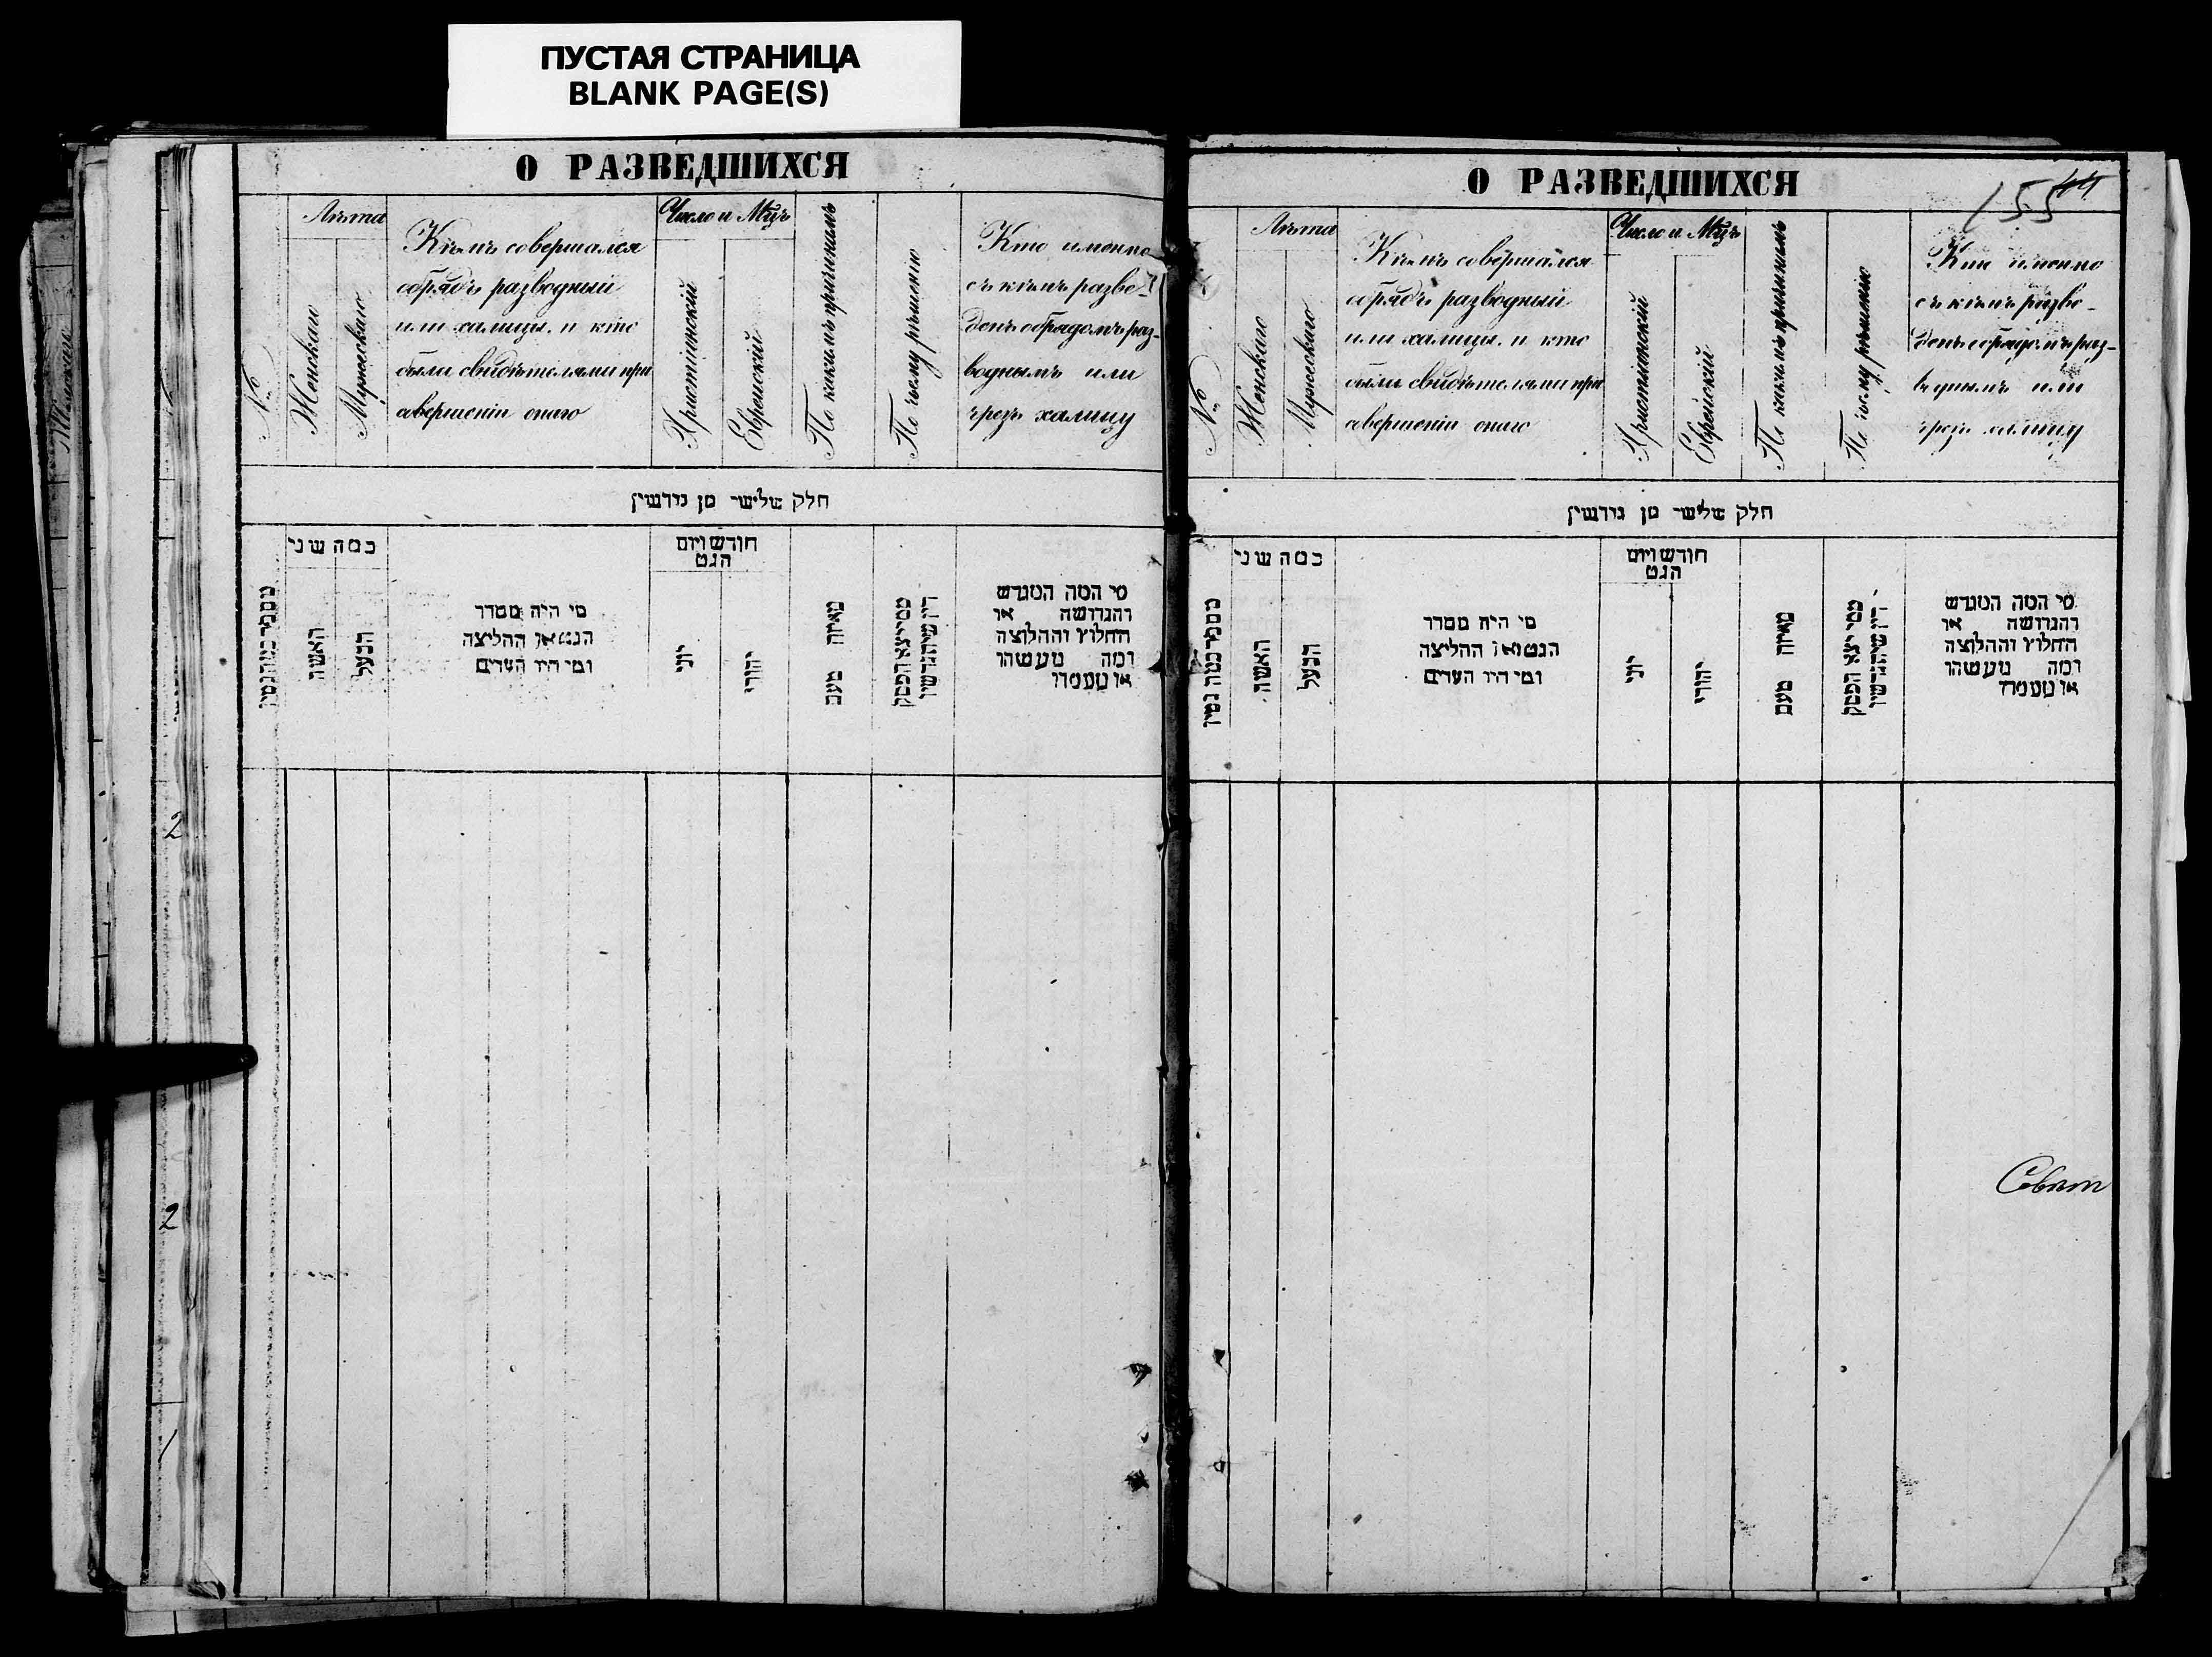 ПУСТАЯ СТРАНИЦА
BLANK PAGE(S)
О РАЗВЕДШИХСЯ
№
Лѣта
Женскаго
Мужескаго
Кѣмъ совершался
обрядъ разводный
или халицы, и кто
были свидѣтелями при
совершеніи онаго
Число и Мцъ
Христіанскій
Еврейскій
По какимъ причинамъ
По чьему рѣшенію
Кто именно
съ кѣмъ разве-
денъ обрядомъ раз-
воднымъ или
чрезъ халицу
חלק שלישי מן גירושין
כמה שני
האשה
הבעל
מי היה מסדר
הגט או החליצה
ומי היו העדים
חודש ויום
הגט
יוני
יהודי
מאיזה טעם
ממי יצא הפסק
דין שיתגרשו
מי המה המגרש
והגרושה או
החלוץ והחלוצה
ומה מעשהו
או מעמדו
О РАЗВЕДШИХСЯ
155
44
№
Лѣта
Женскаго
Мужескаго
Кѣмъ совершался
обрядъ разводный
или халицы, и кто
были свидѣтелями при
совершеніи онаго
Число и Мцъ
Христіанскій
Еврейскій
По какимъ причинамъ
По чьему рѣшенію
Кто именно
съ кѣмъ разве-
денъ обрядомъ раз-
воднымъ или
чрезъ халицу
חלק שלישי מן גירושין
כמה שני
האשה
הבעל
מי היה מסדר
הגט או החליצה
ומי היו העדים
חודש ויום
הגט
יוני
יהודי
מאיזה טעם
ממי יצא הפסק
דין שיתגרשו
מי המה המגרש
והגרושה או
החלוץ והחלוצה
ומה מעשהו
או מעמדו
2
2
1